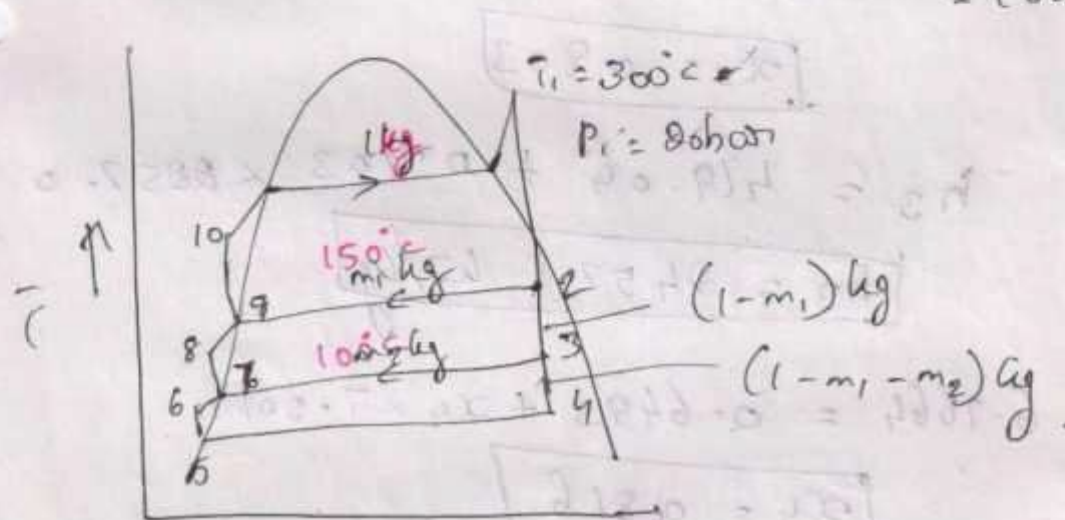 T₁ = 300°C
P₁ = 20bar
1kg
10
150°C
m₁ kg
2
(1-m₁) kg
9
8
100°C
m₂ kg
3
7
6
(1-m₁-m₂) kg
4
5
T